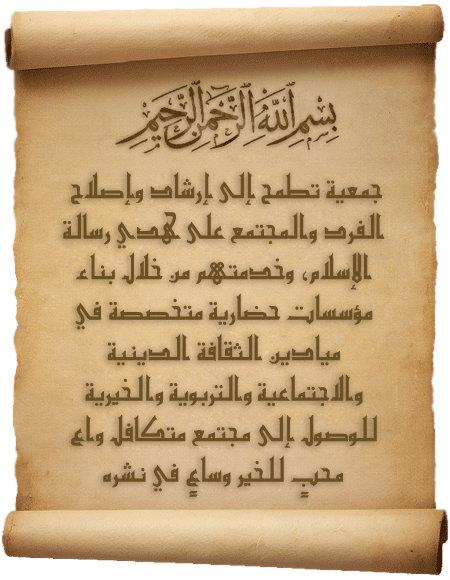 بِسْمِ اللَّهِ الرَّحْمَنِ الرَّحِيمِ
جمعية تطمح إلى إرشاد وإصلاح
الفرد والمجتمع على هدي رسالة
الإسلام، وخدمتهم من خلال بناء
مؤسسات حضارية متخصصة في
ميادين الثقافة الدينية
والاجتماعية والتربوية والخيرية
للوصول إلى مجتمع متكافل واعٍ
محبٍ للخير وساعٍ في نشره